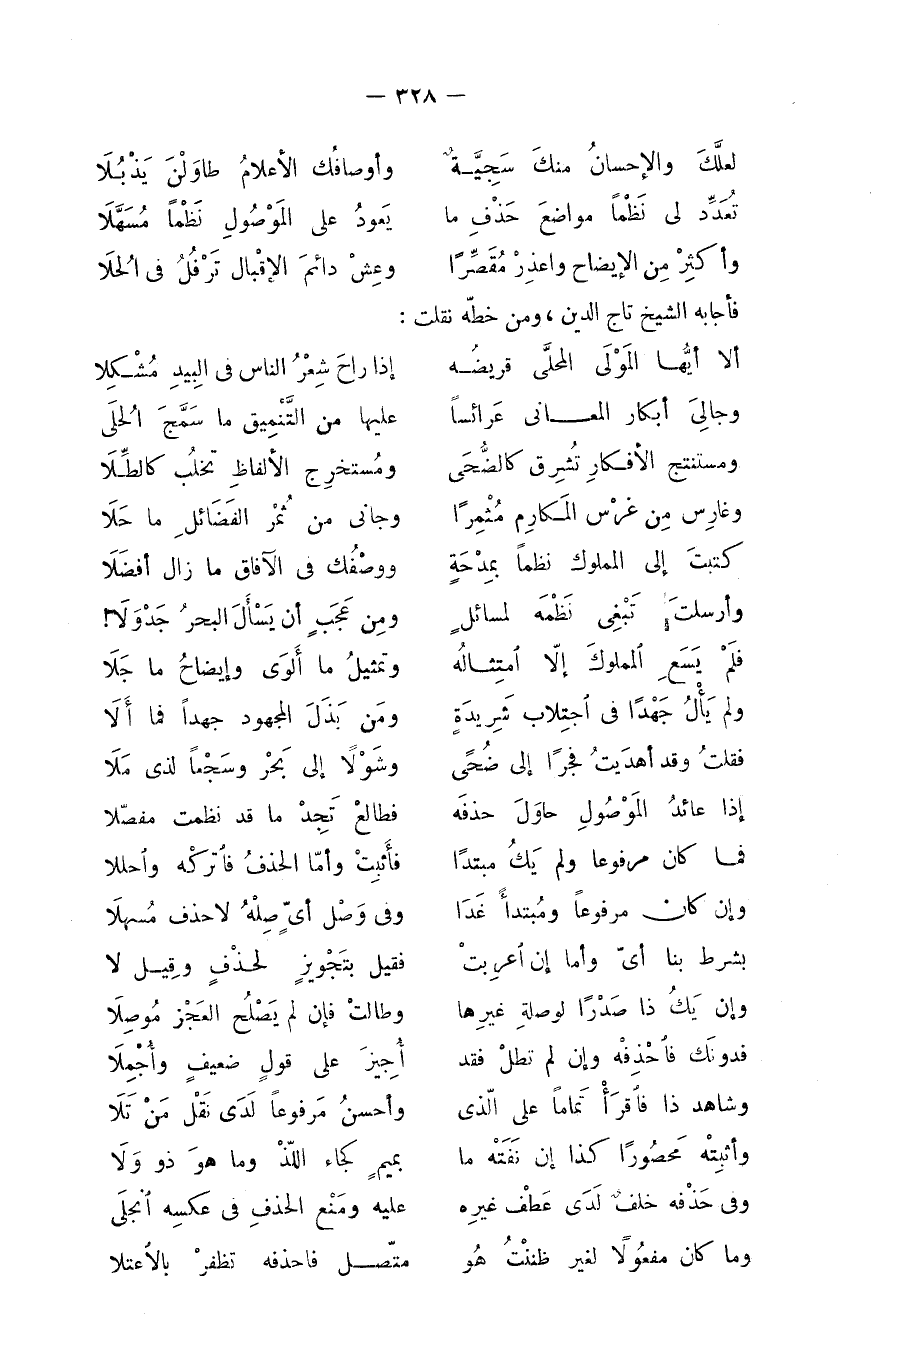 — ٣٢٨ —
لعلَّكَ والإحسانُ منكَ سَجِيَّـةٌ وأوصافُك الأعلامُ طاوَلْنَ يَذْبُلَا
تُعَدِّد لى نَظْماً مواضعَ حَذْفِ ما يَعودُ على المَوْصُولِ نَظْماً مُسَهَّلَا
وأكثِرْ مِن الإيضاح واعذِرْ مُقَصِّرًا وعِشْ دائمَ الإقْبال تَرْفُلُ فى الحُلَا
فأجابه الشيخ تاج الدين ، ومن خطّه نقلت :
ألا أيُّهـا المَوْلَى المحلَّى قريضُـه إذا راحَ شِعْرُ الناس فى البِيدِ مُشْـكِلا
وجالىَ أبكار المعـــانى عَرائساً عليها من التَّنْمِيق ما سَمَّجَ الحُلَى
ومستنتج الأفـكارِ تُشرِق كالضُّحَى ومُستخرِج الألفاظِ تَخلُب كالطِّـلَا
وغارِس مِن غَرْس المَـكارِم مُثْمِرًا وجانى من ثُمْرِ الفَضَائلِ ما حَلَا
كتبتَ إلى المملوك نظماً بمِدْحَةٍ ووصْفُك فى الآفاق ما زال أفضَلَا
وأرسلتَ تَبْغِى نَظْمَه لمسائلٍ ومِن عَجَبٍ أن يَسْأَلَ البحرُ جَدْوَلَا!
فلَمْ يَسَعِ المملوكَ إلّا امتِثـالُه وتمثيلُ ما ألْوَى وإيضاحُ ما جَلَا
ولم يَأْلُ جَهْدًا فى اجتِلاب شَرِيدَةٍ ومَن بَذَلَ المجهود جهداً فما أَلَا
فقلتُ وقد أهدَيتُ فجرًا إلى ضُحًى وشَوْلًا إلى بَحْرٍ وسَجْماً لذى مَلَا
إذا عائدُ المَوْصُولِ حاوَلَ حذفَه فطالعْ تَجِدْ ما قد نظمت مفصّلا
فمـا كان مرفوعا ولم يَكُ مبتدًا فأَثبِتْ وأمّا الحَذفُ فاترُكْه واحظلا
وإن كان مرفوعاً ومُبتدأً غَدَا وفى وَصْل أىّ صِلْهُ لاحذف مُسهلَا
بشرط بنا أىّ وأما إن أعرِبتْ فقيل بتَجْويزٍ لحـذْفٍ وقِيـل لا
وإن يَكُ ذا صَدْرًا لوصلةِ غيرِها وطالتْ فإن لم يَصْلُح العَجْز مُوصِلَا
فدونَك فاحْذِفْه وإن لم تطلْ فقد أُجِيزَ على قولٍ ضعيفٍ وأُجْمِلَا
وشاهد ذا فاقرَأْ تماماً على الّذى وأحسنُ مَرفوعاً لَدَى نَقْل مَنْ تَلَا
وأثبِتْه مَحصُورًا كذا إن نَفَتْه ما بميمٍ كجاء اللّذْ وما هوَ ذو وَلَا
وفى حَذْفه خلفٌ لَدَى عَطْف غيرِه عليه ومَنْع الحذفِ فى عكسِه انجلَى
وما كان مفعُولًا لغير ظننْتُ هُو متّصــل فاحذفه تظفرْ بالأعتلا